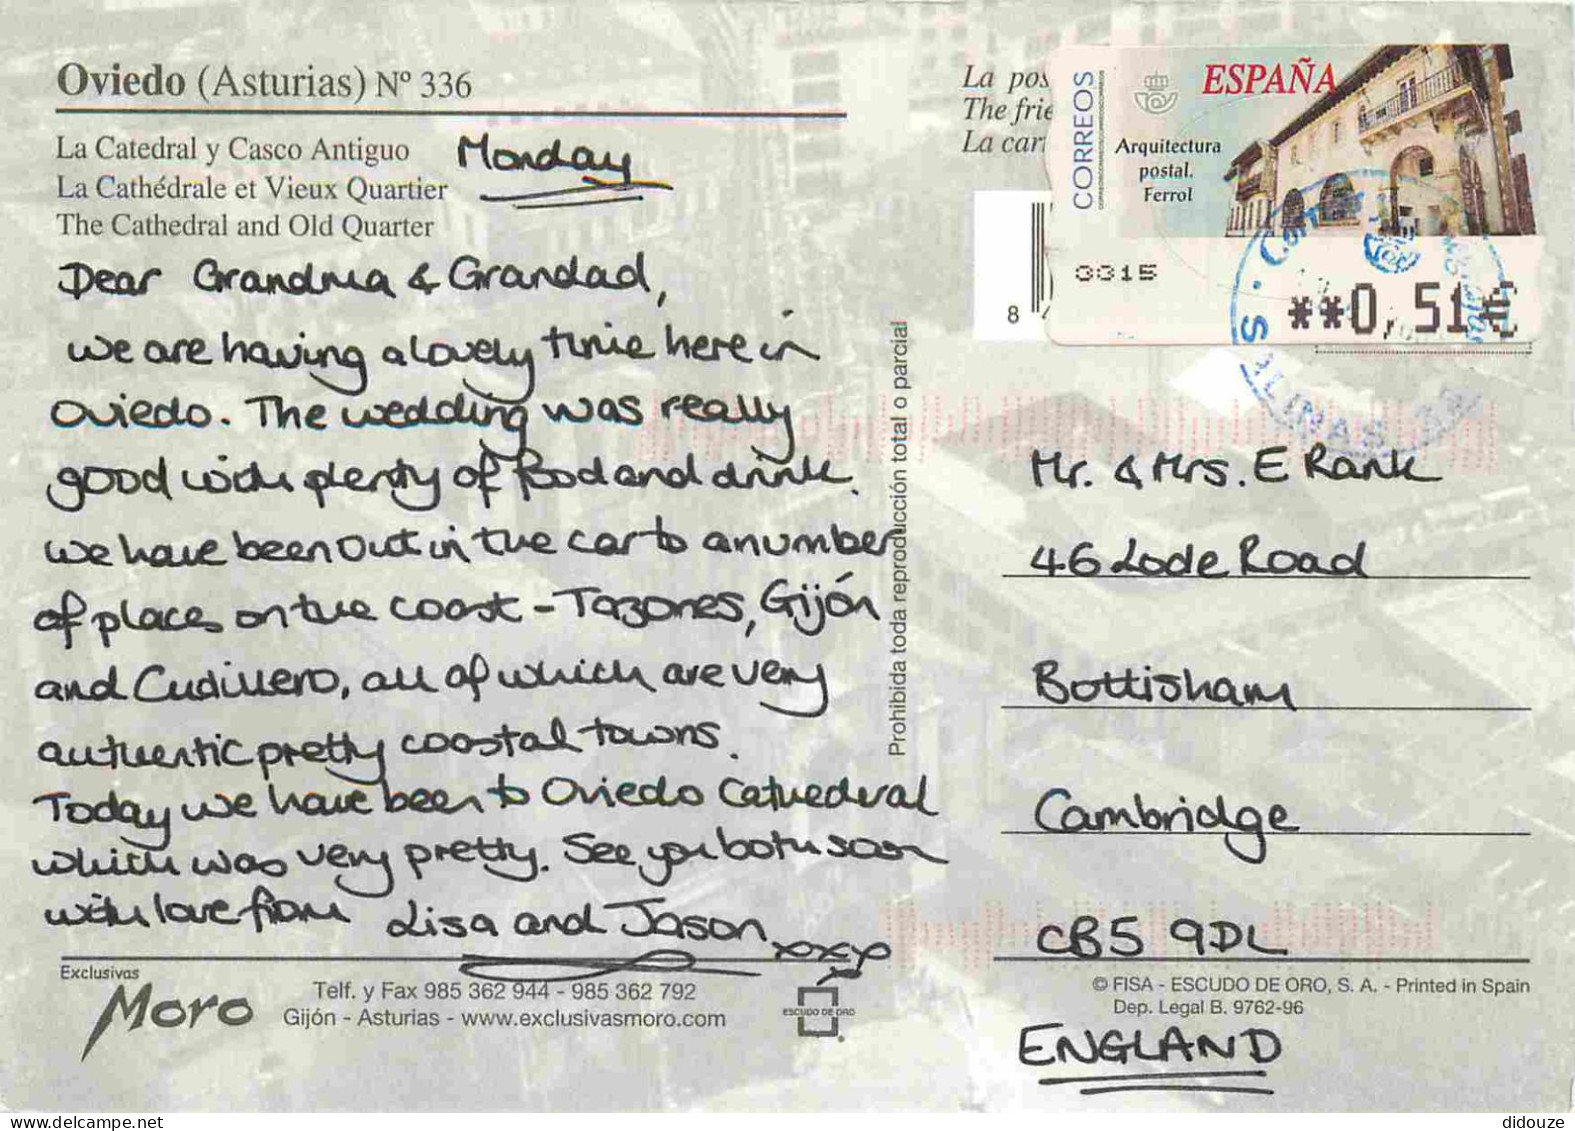 Oviedo (Asturias) Nº 336
La Catedral y Casco Antiguo
La Cathédrale et Vieux Quartier
The Cathedral and Old Quarter
Monday
Dear Grandma & Grandad,
we are having a lovely time here in
Oviedo. The wedding was really
good with plenty of food and drink.
We have been out in the car to a number
of places on the coast - Tazones, Gijón
and Cudillero, all of which are very
authentic pretty coastal towns.
Today we have been to Oviedo Cathedral
which was very pretty. See you both soon
with love from Lisa and Jason
xxxx
Exclusivas
Moro
Telf. y Fax 985 362 944 - 985 362 792
Gijón - Asturias - www.exclusivasmoro.com
ESCUDO DE ORO
Prohibida toda reproducción total o parcial
La pos
The frie
La car
8
CORREOS
ESPAÑA
Arquitectura
postal.
Ferrol
0015
**0,51€
SALINAS
Mr. & Mrs. E Rank
46 Lode Road
Bottisham
Cambridge
CB5 9DL
ENGLAND
© FISA - ESCUDO DE ORO, S. A. - Printed in Spain
Dep. Legal B. 9762-96
didouze